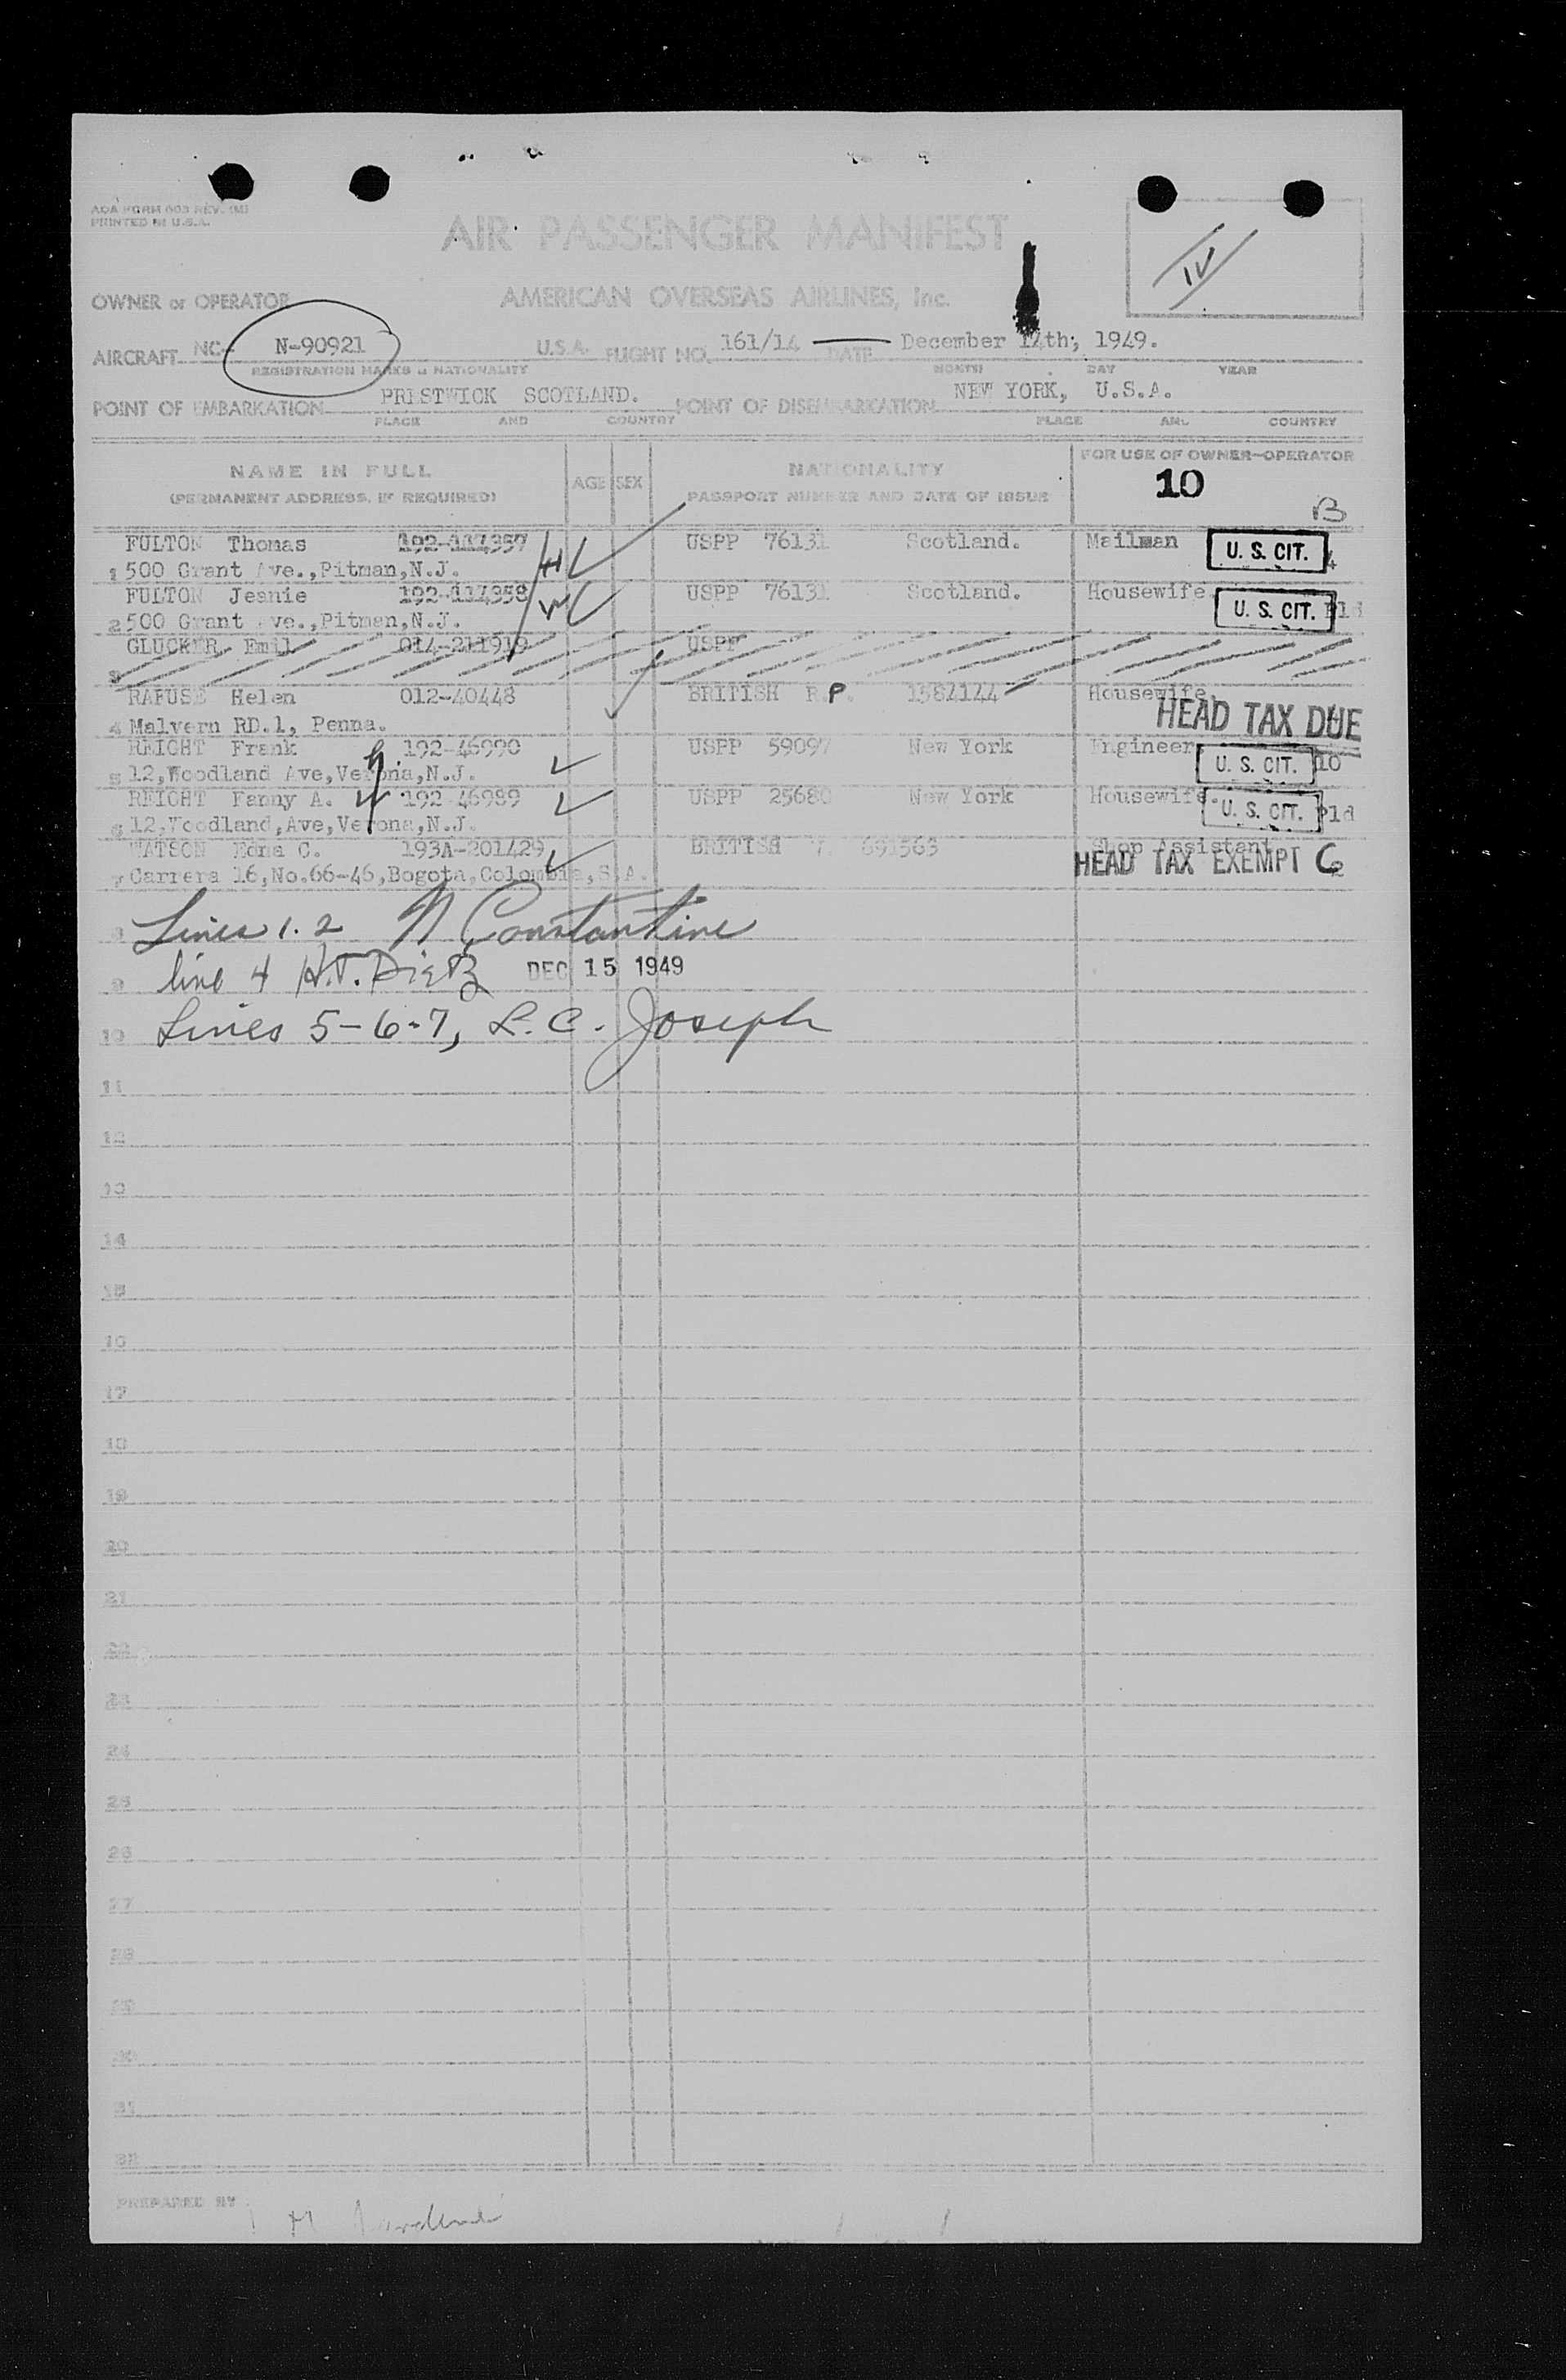 AOA FORM 603 REV. (M)
PRINTED IN U.S.A.
AIR PASSENGER MANIFEST
IV
OWNER or OPERATOR AMERICAN OVERSEAS AIRLINES, Inc.
AIRCRAFT NC- N-90921 U.S.A. FLIGHT NO. 161/14 DATE December 14th, 1949.
REGISTRATION MARKS & NATIONALITY MONTH DAY YEAR
POINT OF EMBARKATION PRESTWICK SCOTLAND. POINT OF DISEMBARKATION NEW YORK, U.S.A.
PLACE AND COUNTRY PLACE AND COUNTRY
NAME IN FULL AGE SEX NATIONALITY FOR USE OF OWNER-OPERATOR
(PERMANENT ADDRESS, IF REQUIRED) PASSPORT NUMBER AND DATE OF ISSUE 10
B
FULTON Thomas 192-114357 USPP 76131 Scotland. Mailman U. S. CIT.
1 500 Grant Ave.,Pitman,N.J. H
FULTON Jeanie 192-114358 USPP 76131 Scotland. Housewife U. S. CIT.
2 500 Grant Ave.,Pitman,N.J. W
GLUCKER Emil 014-211919 USPP
3
RAFUSE Helen 012-40448 BRITISH R.P. 1584144 Housewife.
4 Malvern RD.1, Penna. HEAD TAX DUE
REICHT Frank 192-46990 USPP 59097 New York Engineer
5 12,Woodland Ave,Verona,N.J. U. S. CIT. 10
REICHT Fanny A. 192-46989 USPP 25680 New York Housewife.
6 12,Woodland,Ave,Verona,N.J. U. S. CIT. Pld
WATSON Edna C. 193A-201429 BRITISH V. 691563 Shop Assistant
7 Carrera 16,No.66-46,Bogota,Colombia,S.A. HEAD TAX EXEMPT G
8 Lines 1.2 N Constantine
9 line 4 H.T. Dietz DEC 15 1949
10 Lines 5-6-7, L. C. Joseph
11
12
13
14
15
16
17
18
19
20
21
22
23
24
25
26
27
28
29
30
31
32
PREPARED BY